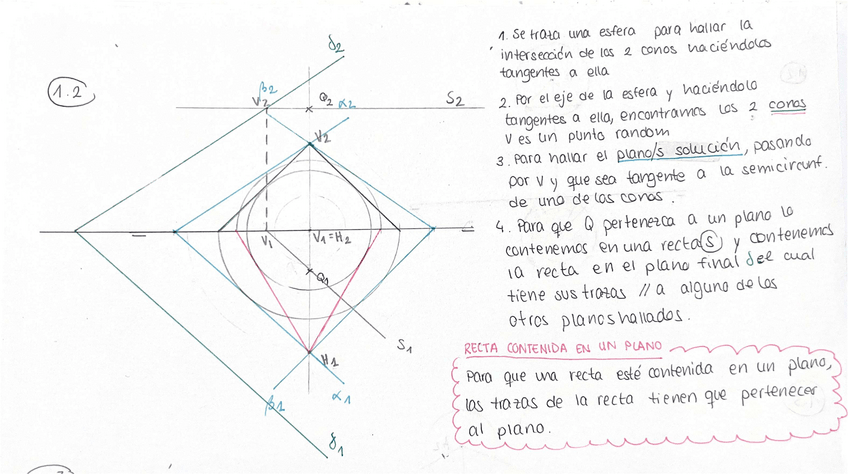 1.2
δ2
β2
V2
Q2
α2
S2
V2
V1
V1=H2
Q1
S1
H1
β1
α1
δ1
1. Se traza una esfera para hallar la
intersección de los 2 conos haciéndolos
tangentes a ella
2. Por el eje de la esfera y haciéndolo
tangentes a ella, encontramos los 2 conos
V es un punto random
3. Para hallar el plano/s solución, pasando
por V y que sea tangente a la semicircunf.
de uno de los conos.
4. Para que Q pertenezca a un plano lo
contenemos en una recta(S) y contenemos
la recta en el plano final del cual
tiene sus trazas // a alguno de los
otros planos hallados.
RECTA CONTENIDA EN UN PLANO
Para que una recta esté contenida en un plano,
las trazas de la recta tienen que pertenecer
al plano.